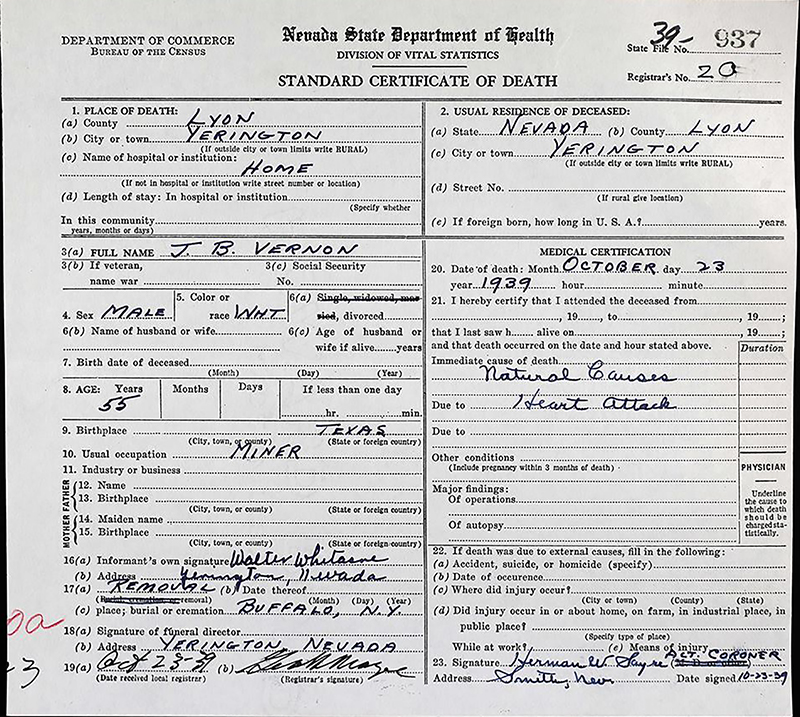 DEPARTMENT OF COMMERCE
BUREAU OF THE CENSUS
Nevada State Department of Health
DIVISION OF VITAL STATISTICS
STANDARD CERTIFICATE OF DEATH
State File No. 39- 937
Registrar's No. 20
1. PLACE OF DEATH:
(a) County LYON
(b) City or town YERINGTON
(If outside city or town limits write RURAL)
(c) Name of hospital or institution:
HOME
(If not in hospital or institution write street number or location)
(d) Length of stay: In hospital or institution
(Specify whether
In this community
years, months or days)
2. USUAL RESIDENCE OF DECEASED:
(a) State NEVADA (b) County LYON
(c) City or town YERINGTON
(If outside city or town limits write RURAL)
(d) Street No.
(If rural give location)
(e) If foreign born, how long in U. S. A.? years.
3(a) FULL NAME J. B. VERNON
3(b) If veteran, name war
3(c) Social Security No.
4. Sex MALE
5. Color or race WHT
6(a) Single, widowed, married, divorced
6(b) Name of husband or wife
6(c) Age of husband or wife if alive years
7. Birth date of deceased
(Month) (Day) (Year)
8. AGE: Years Months Days If less than one day
55 hr. min.
9. Birthplace TEXAS
(City, town, or county) (State or foreign country)
10. Usual occupation MINER
11. Industry or business
FATHER
12. Name
13. Birthplace
(City, town, or county) (State or foreign country)
MOTHER
14. Maiden name
15. Birthplace
(City, town, or county) (State or foreign country)
16(a) Informant's own signature Walter
(b) Address Yerington, Nevada
17(a) REMOVAL (b) Date thereof
removal) (Month) (Day) (Year)
(c) place; burial or cremation BUFFALO, N.Y.
18(a) Signature of funeral director
(b) Address YERINGTON NEVADA
19(a) Oct 23-39 (b)
(Date received local registrar) (Registrar's signature)
MEDICAL CERTIFICATION
20. Date of death: Month OCTOBER day 23
year 1939 hour minute
21. I hereby certify that I attended the deceased from
, 19 , to , 19 ;
that I last saw h alive on , 19 ;
and that death occurred on the date and hour stated above.
Duration
Immediate cause of death
Natural Causes
Due to Heart Attack
Due to
Other conditions
(Include pregnancy within 3 months of death)
Major findings:
Of operations
Of autopsy
PHYSICIAN
Underline
the cause
to which
death
should be
charged sta-
tistically.
22. If death was due to external causes, fill in the following:
(a) Accident, suicide, or homicide (specify)
(b) Date of occurence
(c) Where did injury occur?
(City or town) (County) (State)
(d) Did injury occur in or about home, on farm, in industrial place, in
public place?
(Specify type of place)
While at work? (e) Means of injury
23. Signature Herman W Sayre ACT. CORONER
Address Smith, Nev Date signed 10-23-39